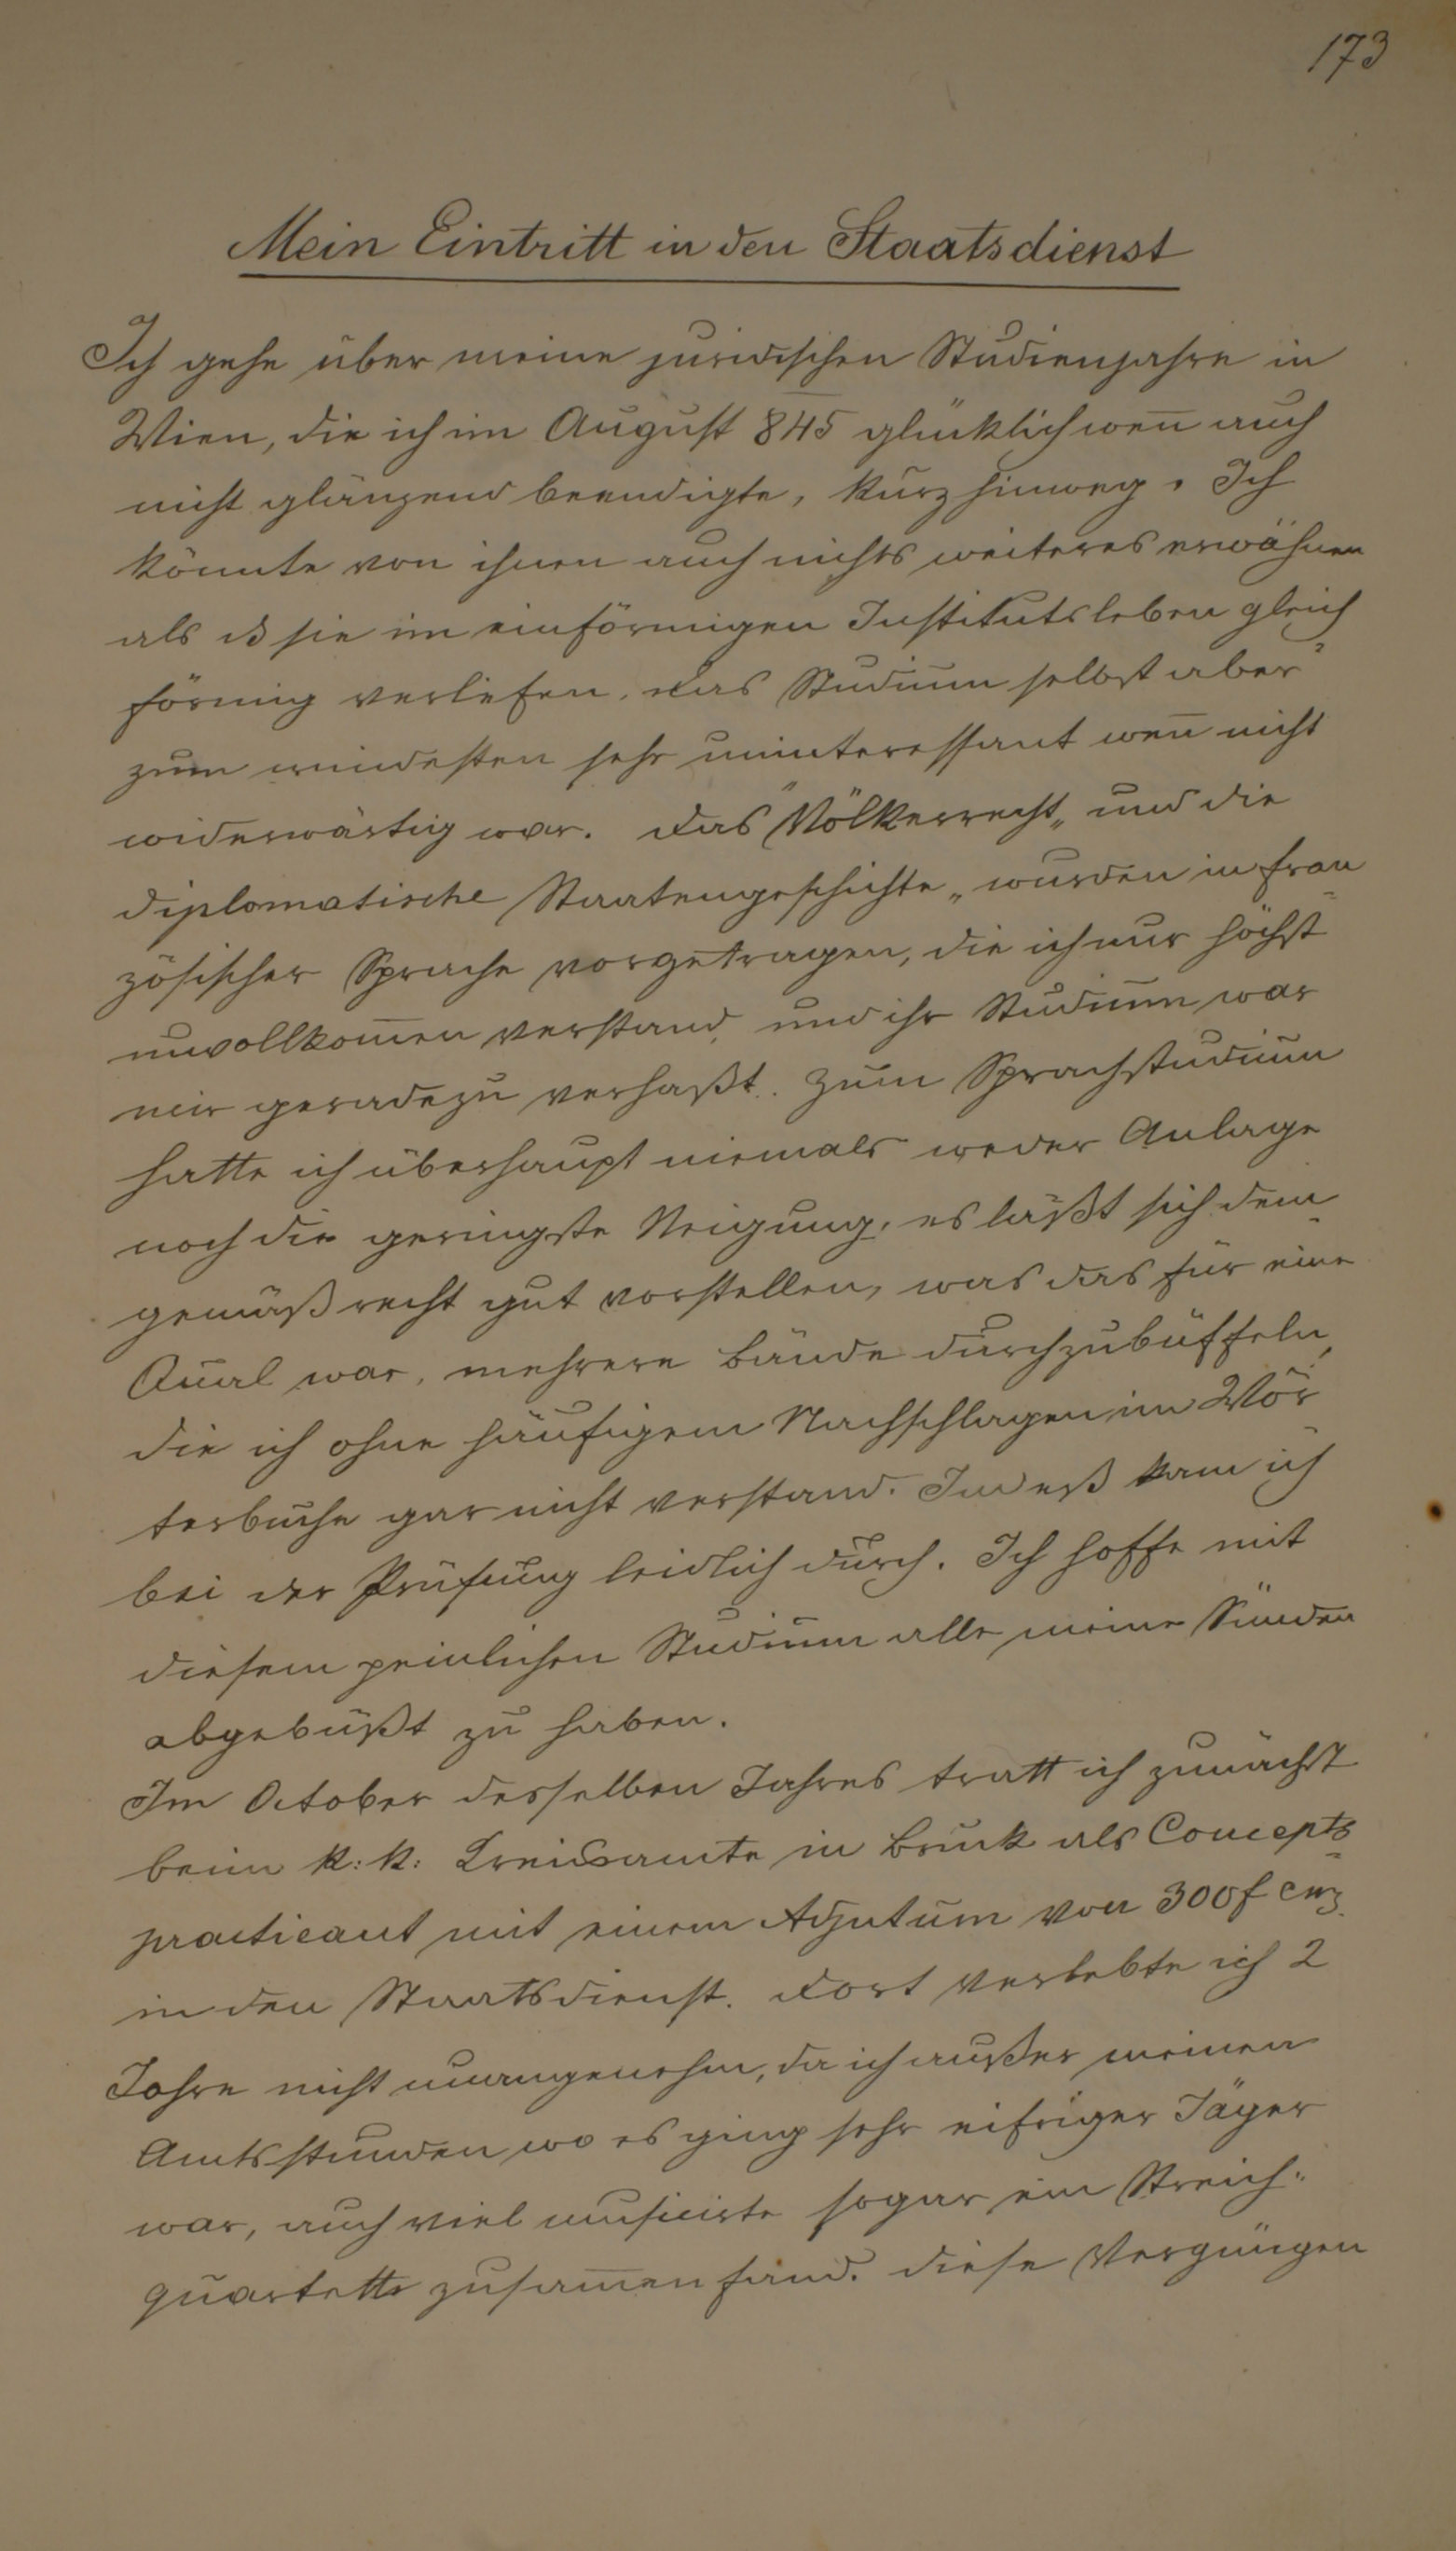 173
Mein Eintritt in den Staatsdienst
Ich gehe über meine juridischen Studienjahre in
Wien, die ich im August 845 glücklich wen̅ auch
nicht glänzend beendigte, kurz hinweg. Ich
könnte von ihnen auch nichts weiteres erwähnen
als ß sie im einförmigen Institutsleben gleich
förmig verliefen, das Studium selbst aber
zum mindesten sehr uninteressant wen̅ nicht
widerwärtig war. Das "Völkerrecht„ und die
diplomatische Staatengeschichte„ wurden in fran
zösischer Sprache vorgetragen, die ich nur höchst
unvollkom̅en verstand, und ihr Studium war
mir geradezu verhaßt. Zum Sprachstudium
hatte ich überhaupt niemals weder Anlage
noch die geringste Neigung, es läßt sich dem
gemäß recht gut vorstellen, was das für eine
Qual war, mehrere Bände durchzubüffeln,
die ich ohne häufigem Nachschlagen im Wör
terbuche gar nicht verstand. Indeß kam ich
bei der Prüfung leidlich durch. Ich hoffe mit
diesem peinlichen Studium alle meine Sünden
abgebüßt zu haben.
Im October desselben Jahres tratt ich zunächst
beim k: k: Kreisamte in Bruck als Concepts
practicant mit einem Adjutum von 300f CMz
in den Staatsdienst. Dort verlebte ich 2
Jahre nicht unangenehm, da ich außer meinen
Amtsstunden wo es ging sehr eifriger Jäger
war, auch viel musicirte sogar ein Streich-
quartette zusam̅en fand. Diese Vergnügen